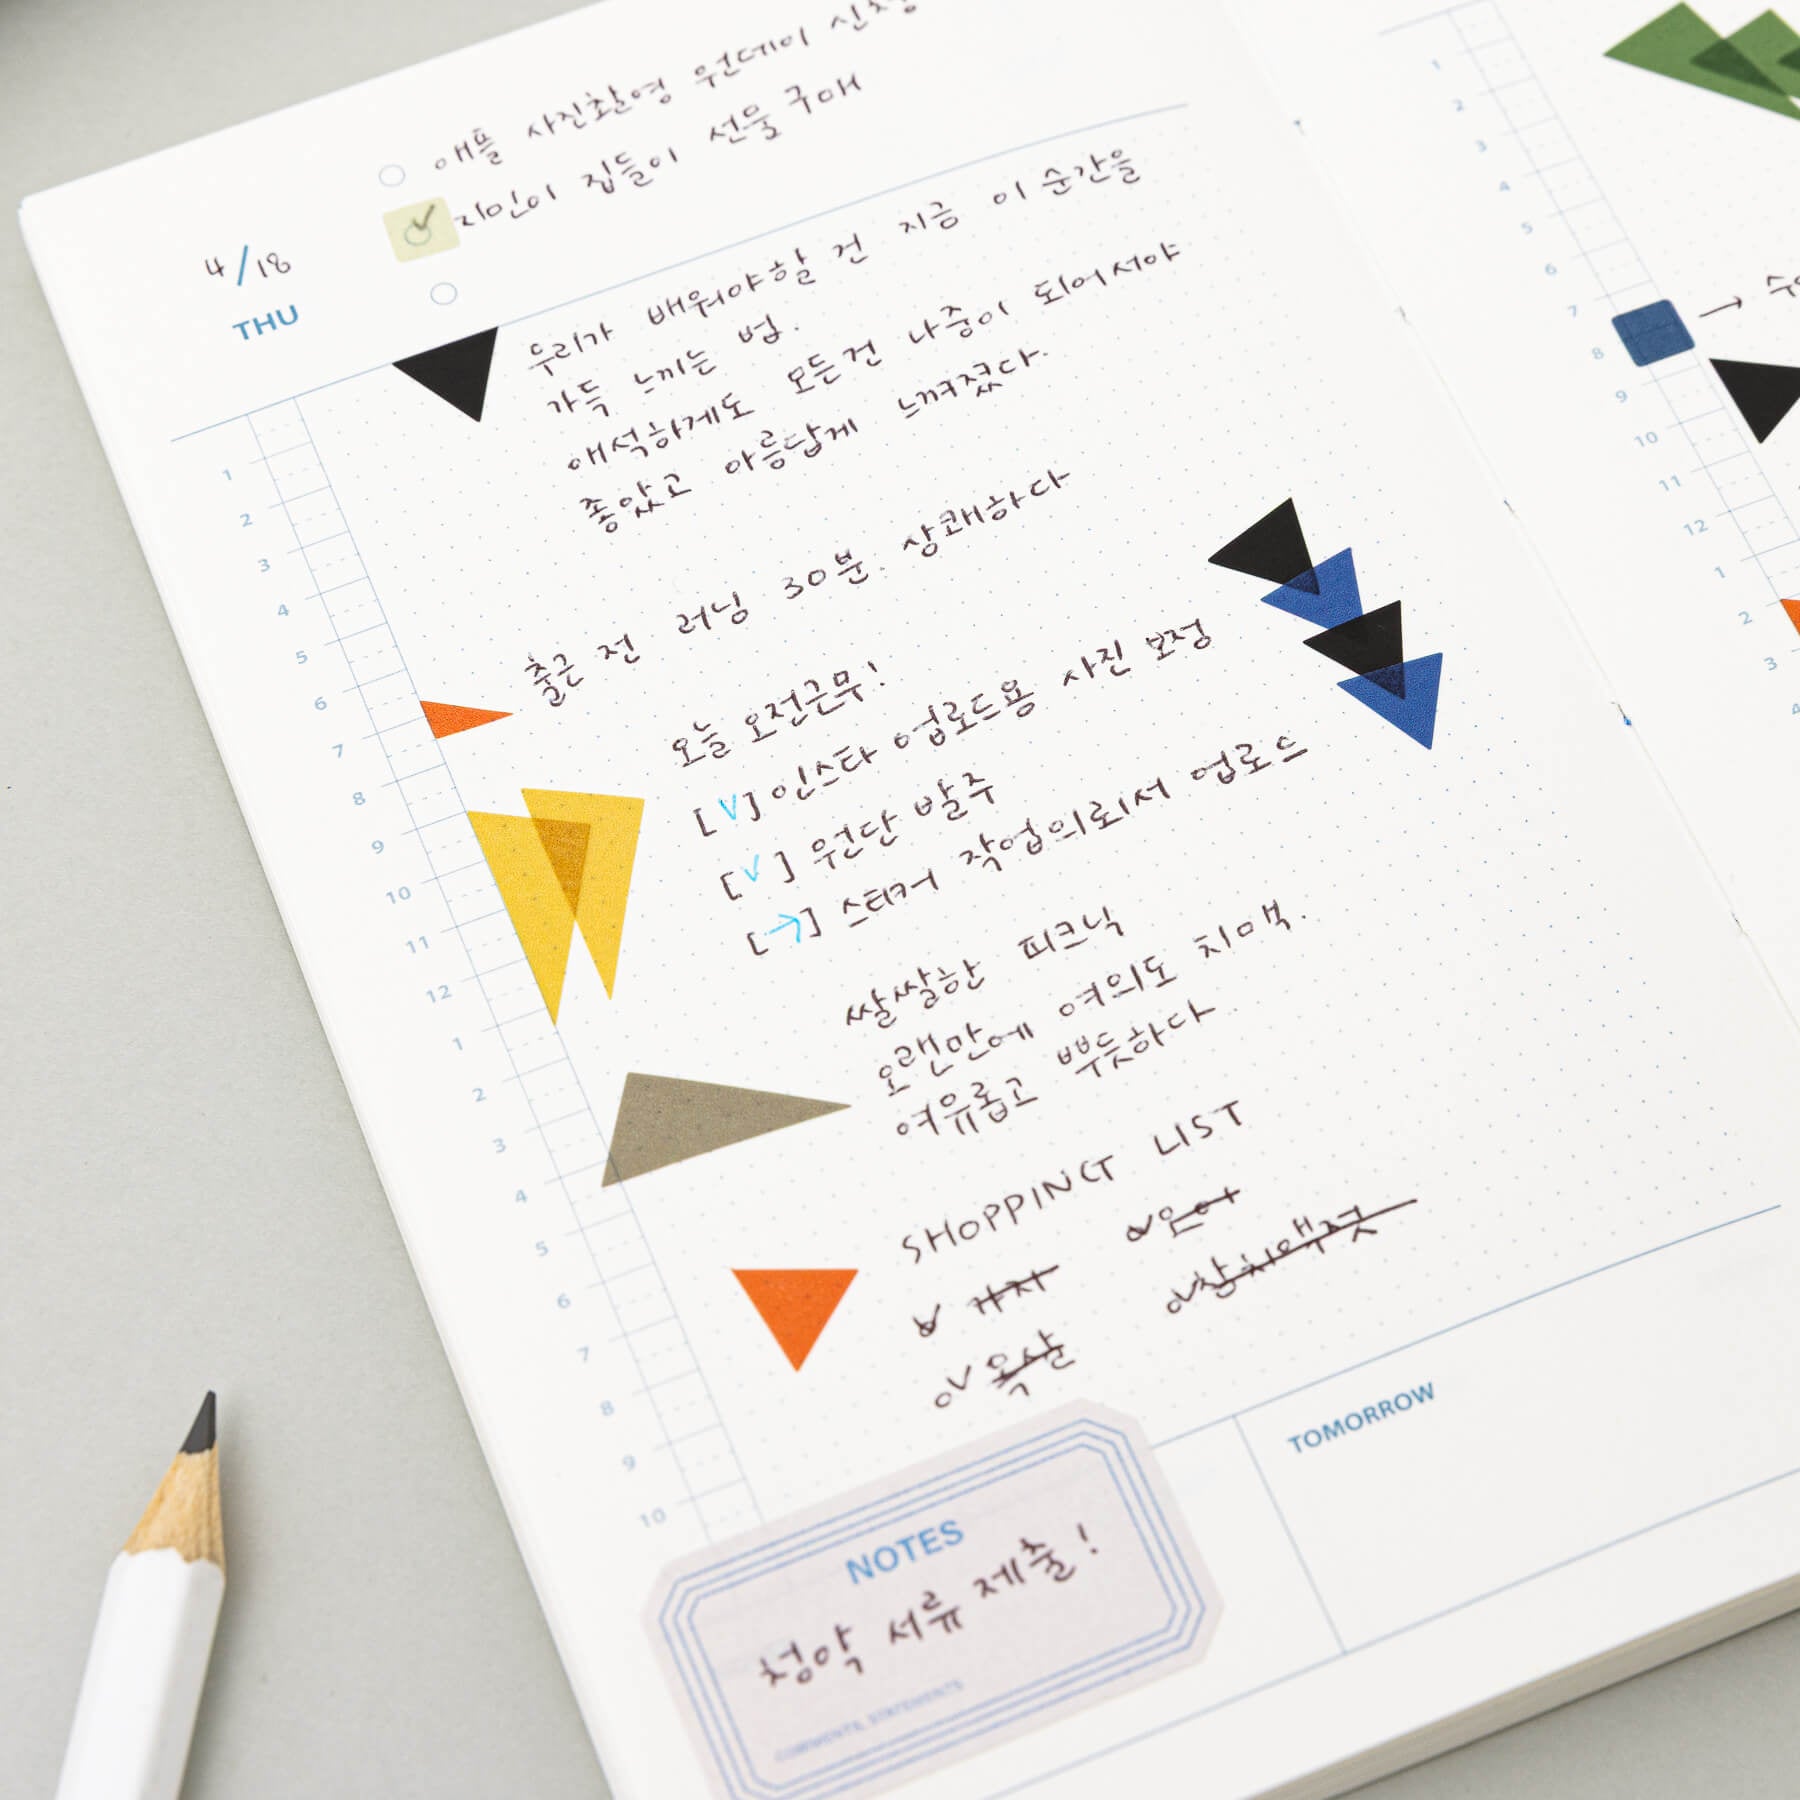 애플 사진촬영 원데이 신청
지민이 집들이 선물 구매
4/18
THU
우리가 배워야할 건 지금 이 순간을
가득 느끼는 법.
애석하게도 모든건 나중이 되어서야
좋았고 아름답게 느껴졌다.
출근 전 러닝 30분. 상쾌하다
오늘 오전근무!
[V] 인스타 업로드용 사진 보정
[V] 원단 발주
[→] 스티커 작업의뢰서 업로드
쌀쌀한 피크닉
오랜만에 여의도 치맥.
여유롭고 뿌듯하다
SHOPPING LIST
가지
오이
옥상
참치액젓
1
2
3
4
5
6
7
8
9
10
11
12
1
2
3
4
5
6
7
8
9
10
NOTES
청약 서류 제출!
COMMENTS, STATEMENTS
TOMORROW
1
2
3
4
5
6
7
8
→
9
10
11
12
1
2
3
4